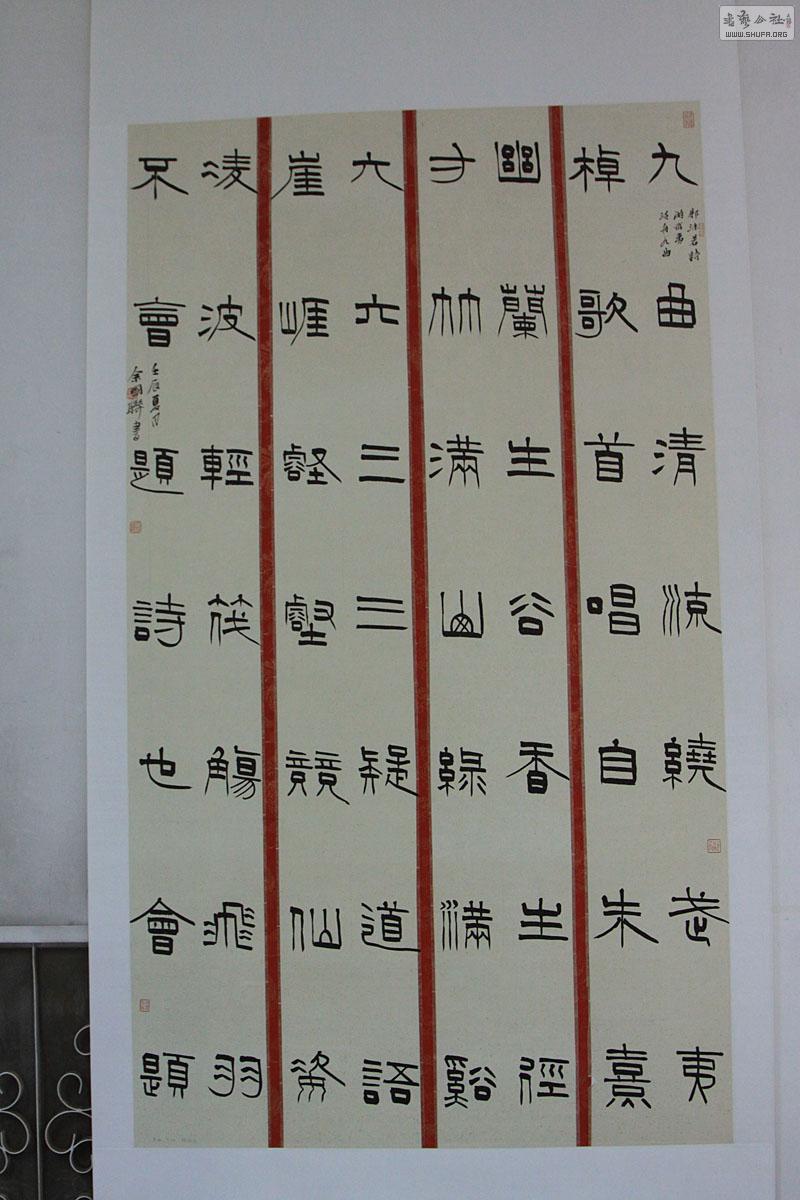 九曲清流繞武夷
郭沫若詩
游武夷
泛舟九曲
棹歌首唱自朱熹
幽蘭生谷香生徑
方竹滿山綠滿谿
六六三三疑道語
崖崖壑壑競仙姿
凌波輕筏觴飛羽
不會題詩也會題
壬辰夏月
書藝公社
WWW.SHUFA.ORG